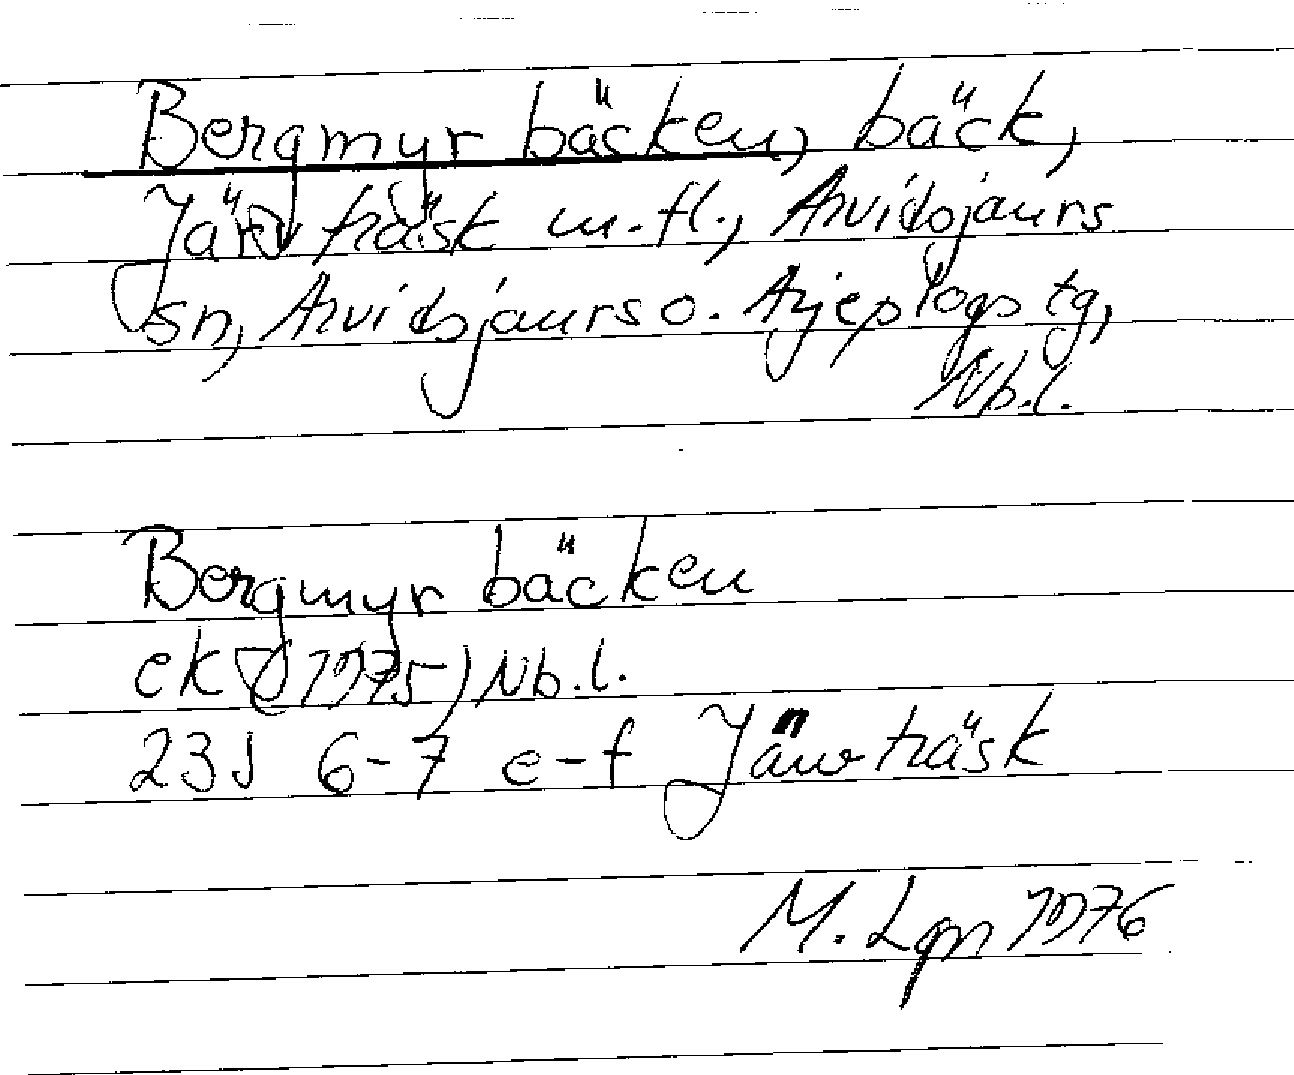 Bergmyrbäcken, bäck,
Järvträsk m.fl., Arvidsjaurs
sn, Arvidsjaurs o. Arjeplogs tg,
Nb.l.
Bergmyrbäcken
ek (1975) Nb.l.
23J 6-7 e-f Järvträsk
M. Lgn 1976